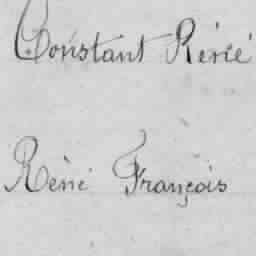 Constant René
René François